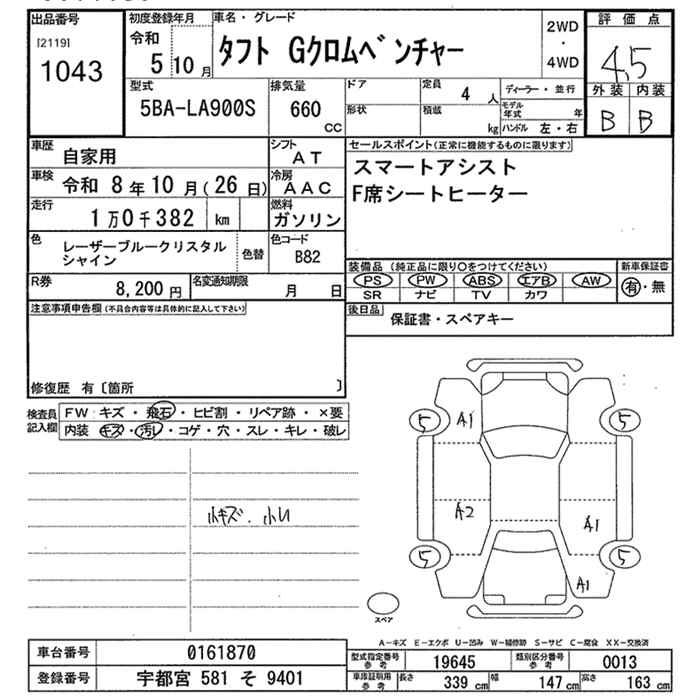 出品番号
[2119]
1043
初度登録年月
令和
5 10 月
車名・グレード
タフト Gクロムベンチャー
2WD
・
4WD
評価点
4.5
外装 内装
B B
型式
5BA-LA900S
排気量
660
CC
ドア
形状
定員 4 人
積載 kg
ディーラー・並行
モデル年式 年
ハンドル 左・右
車歴 自家用
シフト AT
車検 令和 8年10月(26日)
冷房 AAC
走行 1万0千382 km
燃料 ガソリン
色 レーザーブルークリスタル
シャイン
色替
色コード B82
R券 8,200円
名変通知期限 月 日
セールスポイント(正常に機能するものに限ります)
スマートアシスト
F席シートヒーター
装備品 (純正品に限り○をつけてください)
PS PW ABS エアB AW
SR ナビ TV カワ
新車保証書
有・無
後日品 保証書・スペアキー
注意事項申告欄(不具合内容等は具体的に記入して下さい)
修復歴 有〔箇所 〕
検査員
記入欄
FW:キズ・飛石・ヒビ割・リペア跡・×要
内装 キズ・汚レ・コゲ・穴・スレ・キレ・破レ
小キズ.小凹
5 A1 5
A2 A1
5 A1 5
スペア
A-キズ E-エクボ U-凹み W-補修跡 S-サビ C-腐食 XX-交換済
車台番号 0161870
登録番号 宇都宮 581 そ 9401
型式指定番号
参考
19645
類別区分番号
参考
0013
車庫証明用
参考
長さ 339 cm 幅 147 cm 高さ 163 cm